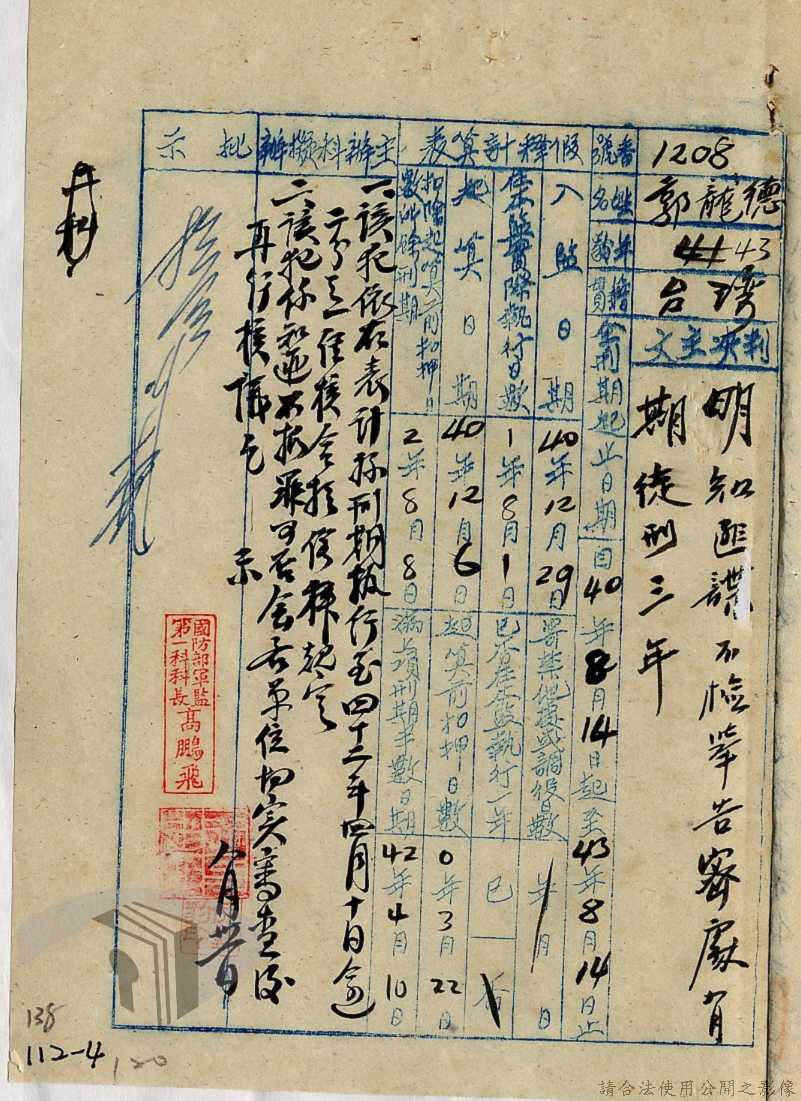 番號 1208
姓名 郭龍德
年齡 43
籍貫 台灣
判決主文
明知匪諜不檢舉告密處有
期徒刑三年
假釋計算表
全刑期起止日期 自40年8月14日起至43年8月14日止
入監日期 40年12月29日
寄禁他處或調役日數 年 月 日
在本監實際執行日數 1年8月1日
已否在本監執行一年 已 否
起算日期 40年12月6日
起算前扣押日數 0年3月22日
扣除起算前扣押日數外餘刑期 2年8月8日
滿上項刑期半數日期 42年4月10日
主辦科擬辦
一、該犯依右表計算刑期執行至四十二年四月十日逾
二分之一佳核合於假釋規定
二、該犯係知匪不報罪可否會各單位切實審查後
再行核議乞
示
國防部軍監
第一科科長 高鵬飛
八月卅日
批示
138
112-4
120
請合法使用公開之影像